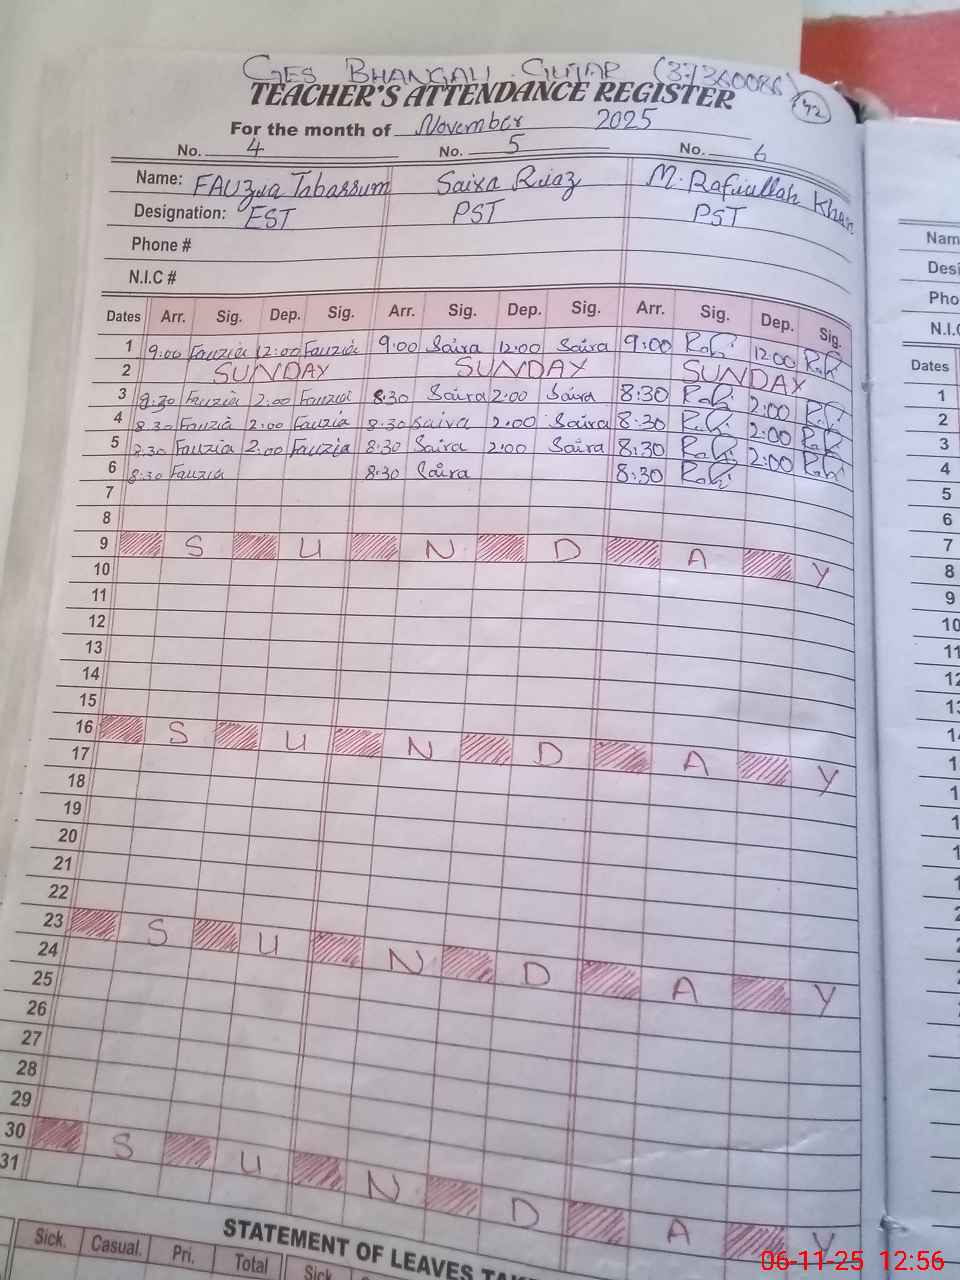 GES BHANGALI GUJAR (37360086)
42
TEACHER'S ATTENDANCE REGISTER
For the month of November 2025
No. 4 No. 5 No. 6
Name: FAUZia Tabassum Saira Riaz M. Rafiullah Khan
Designation: EST PST PST
Phone #
N.I.C #
Dates Arr. Sig. Dep. Sig. Arr. Sig. Dep. Sig. Arr. Sig. Dep. Sig.
1 9:00 Fauzia 12:00 Fauzia 9:00 Saira 12:00 Saira 9:00 Rafi 12:00 Rafi
2 SUNDAY SUNDAY SUNDAY
3 8:30 Fauzia 2:00 Fauzia 8:30 Saira 2:00 Saira 8:30 Rafi 2:00 Rafi
4 8:30 Fauzia 2:00 Fauzia 8:30 Saira 2:00 Saira 8:30 Rafi 2:00 Rafi
5 8:30 Fauzia 2:00 Fauzia 8:30 Saira 2:00 Saira 8:30 Rafi 2:00 Rafi
6 8:30 Fauzia 8:30 Saira 8:30 Rafi
7
8
9 S U N D A Y
10
11
12
13
14
15
16 S U N D A Y
17
18
19
20
21
22
23 S U N D A Y
24
25
26
27
28
29
30 S U N D A Y
31
STATEMENT OF LEAVES
Sick. Casual. Pri. Total Sick
Nam
Desi
Pho
N.I.C
Dates
1
2
3
4
5
6
7
8
9
10
11
12
06-11-25 12:56